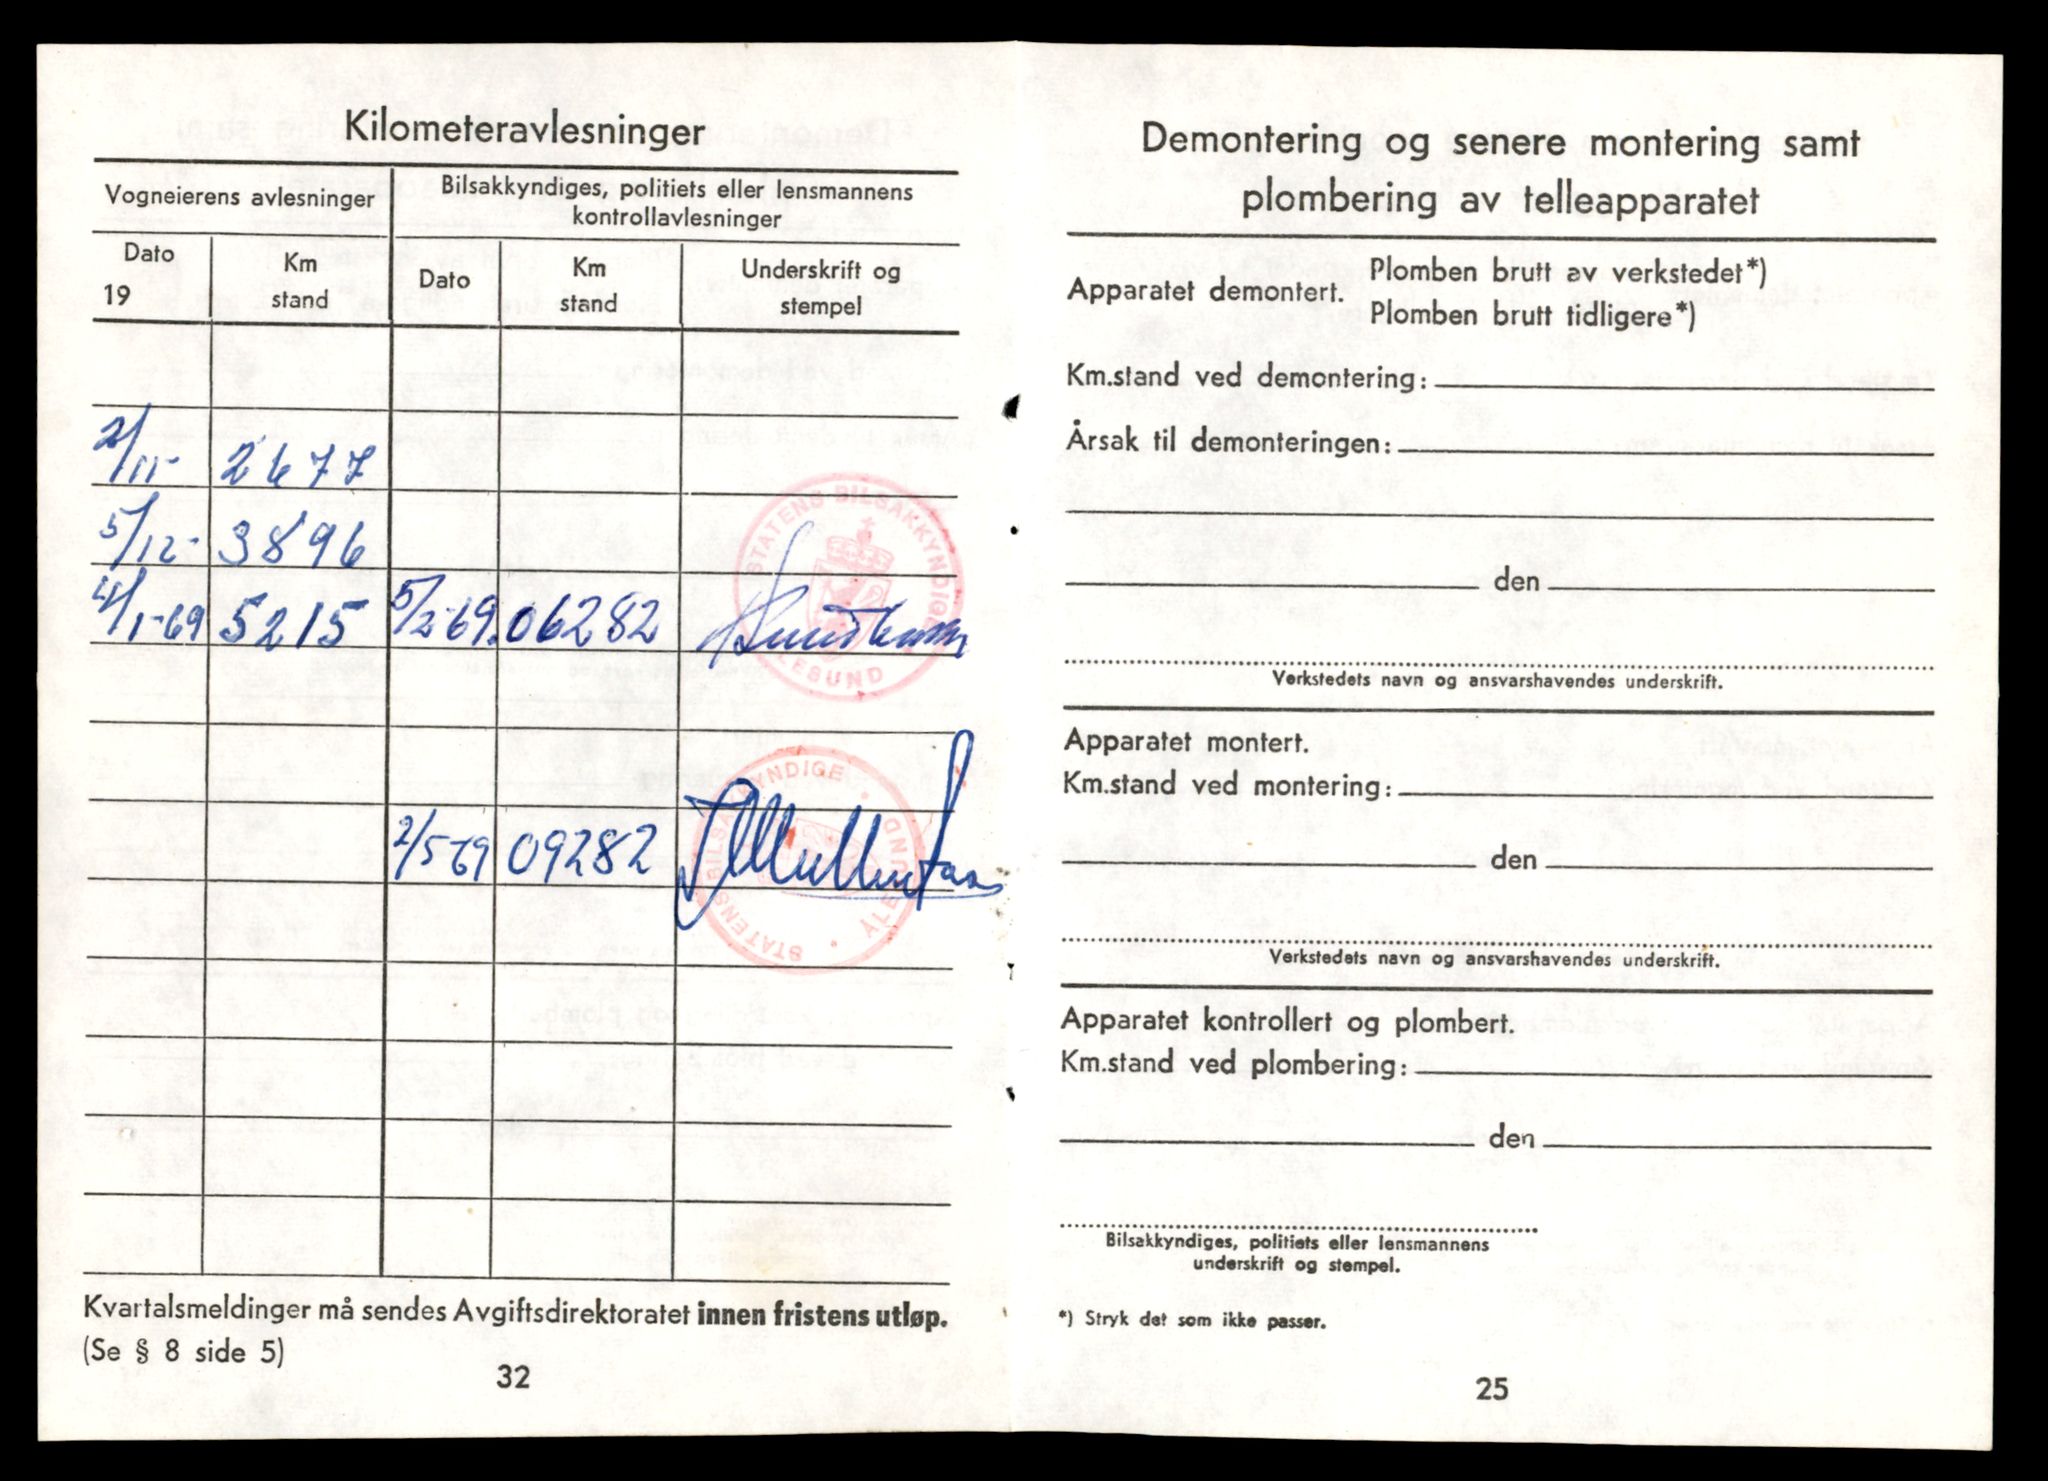 Kilometeravlesninger
Vogneierens avlesninger
Bilsakkyndiges, politiets eller lensmannens
kontrollavlesninger
Dato
19
Km
stand
Dato
Km
stand
Underskrift og
stempel
2/11- 2677
5/12- 3896
4/1-69 5215 5/2-69. 06282
STATENS BILSAKKYNDIGE
ÅLESUND
2/5-69 09282
STATENS BILSAKKYNDIGE • ÅLESUND •
Kvartalsmeldinger må sendes Avgiftsdirektoratet innen fristens utløp.
(Se § 8 side 5)
32
Demontering og senere montering samt
plombering av telleapparatet
Apparatet demontert.
Plomben brutt av verkstedet*)
Plomben brutt tidligere*)
Km.stand ved demontering:
Årsak til demonteringen:
den
Verkstedets navn og ansvarshavendes underskrift.
Apparatet montert.
Km.stand ved montering:
den
Verkstedets navn og ansvarshavendes underskrift.
Apparatet kontrollert og plombert.
Km.stand ved plombering:
den
Bilsakkyndiges, politiets eller lensmannens
underskrift og stempel.
*) Stryk det som ikke passer.
25